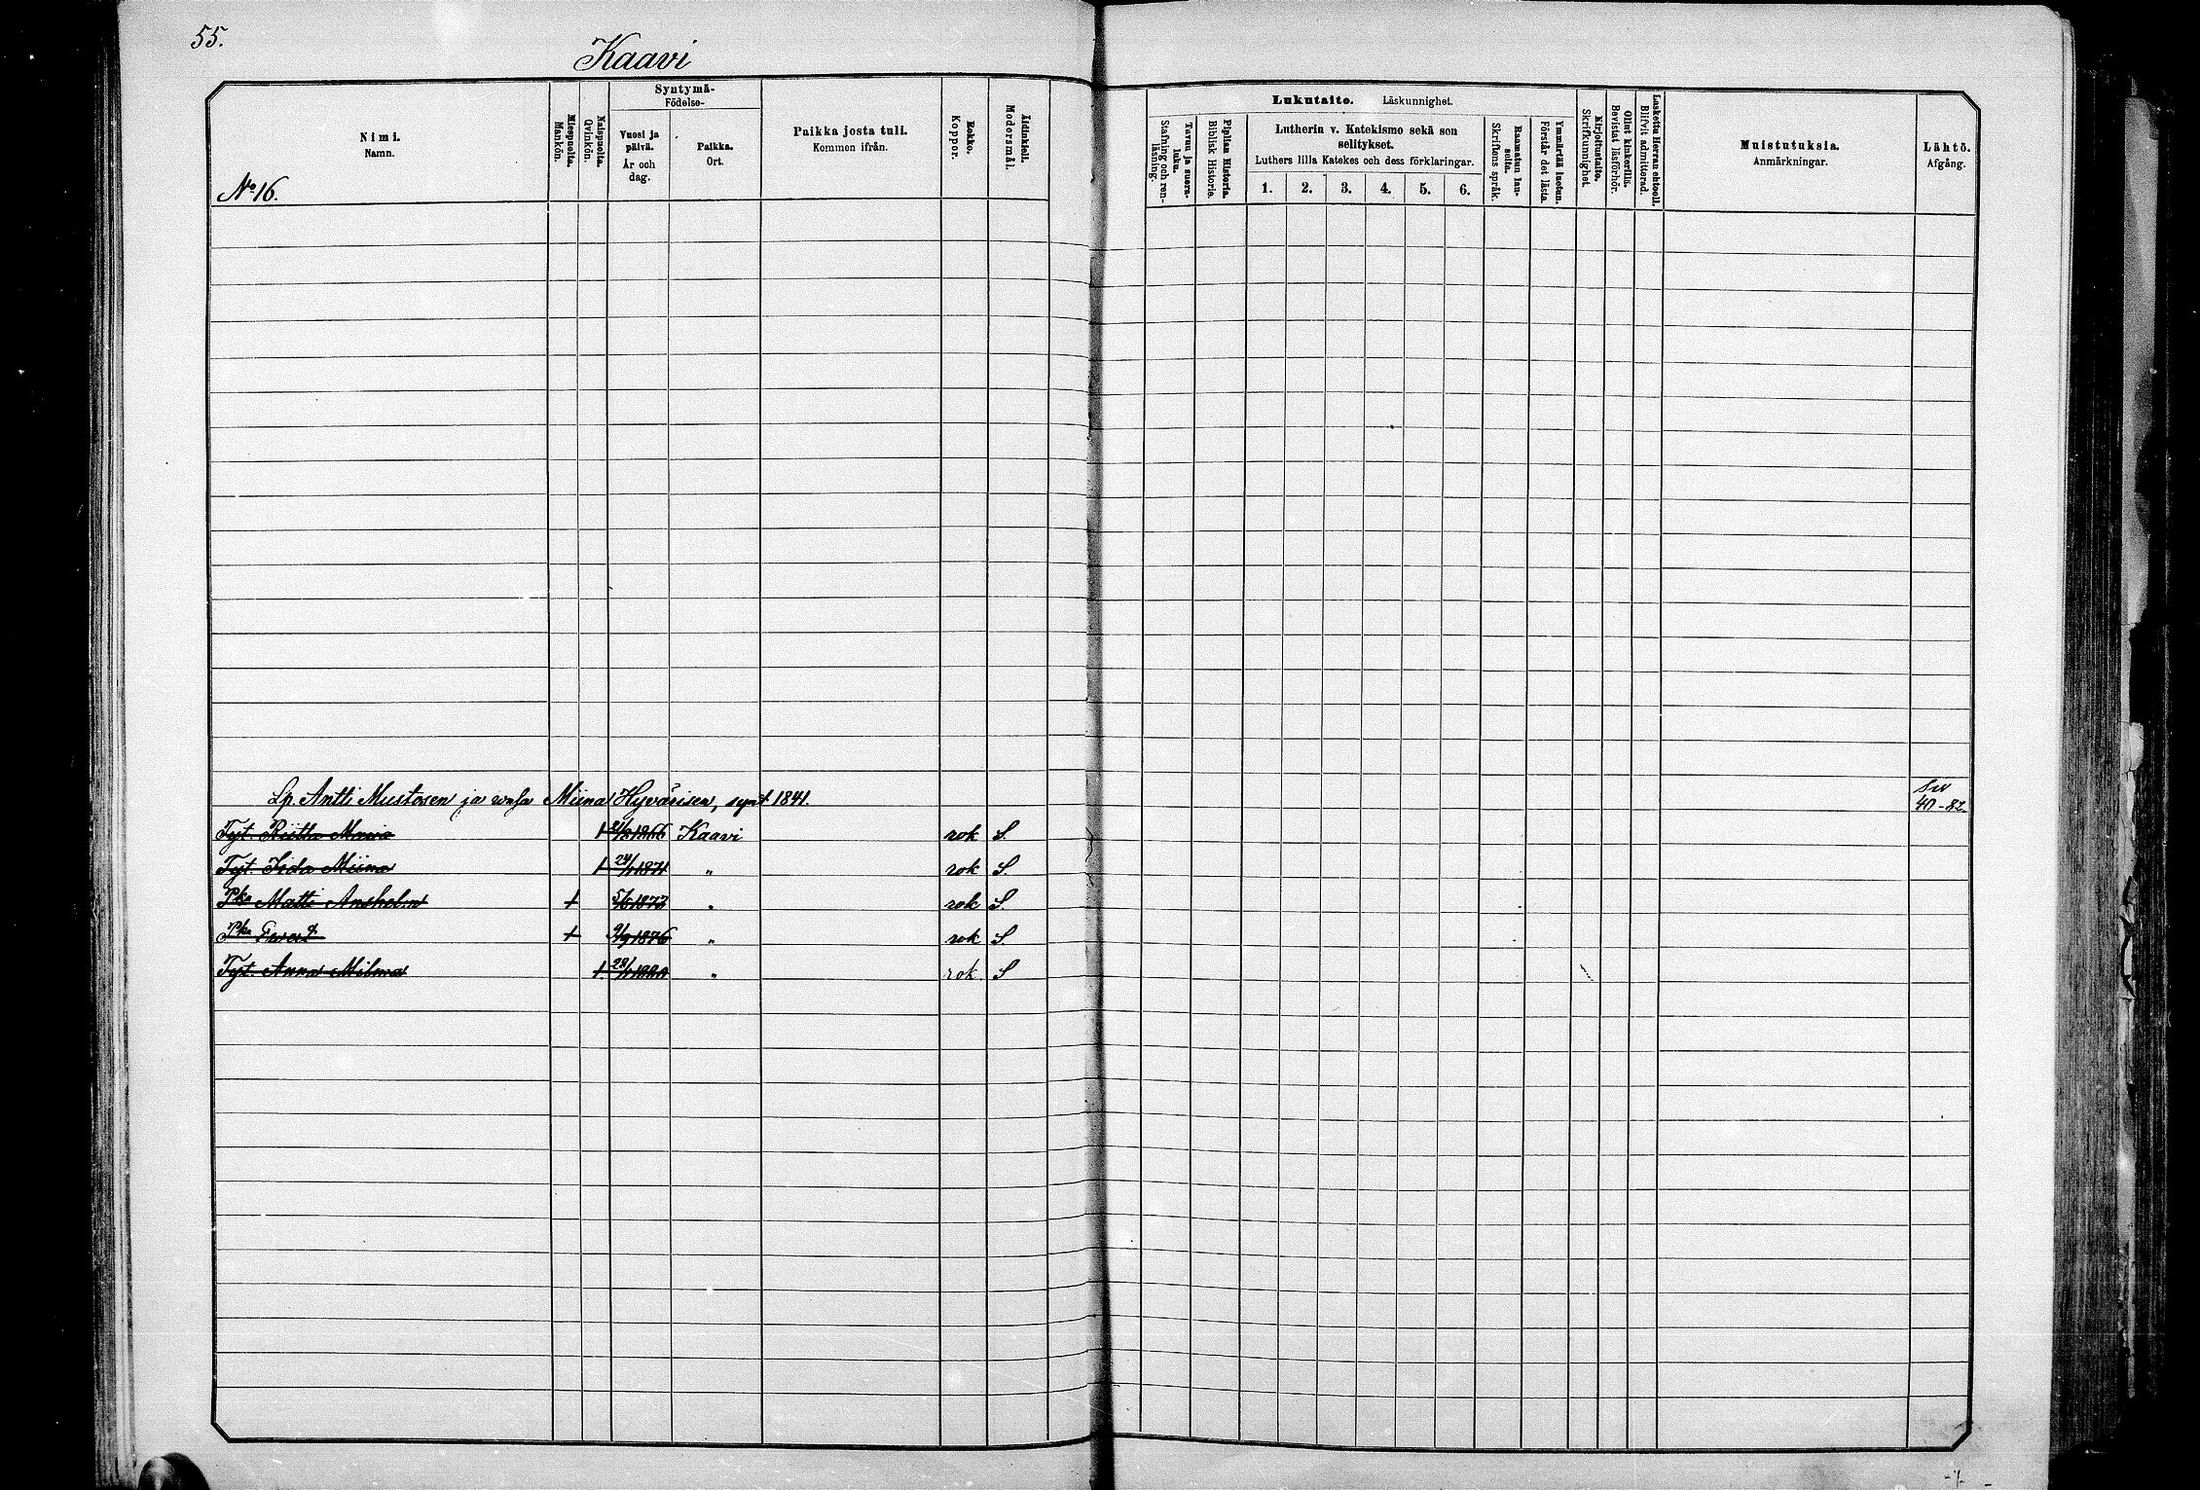 55.
Kaavi
Nimi.
Namn.
No 16.
Miespuolia.
Mankön.
Naispuolia.
Qvinkön.
Syntymä-
Födelse-
Vuosi ja
päivä.
År och
dag.
Paikka.
Ort.
Paikka josta tuli.
Kommen ifrån.
Rokko.
Koppor.
Äidinkieli.
Modersmål.
Lp. Antti Mustosen ja waļa Miina Hyvärisen, synt 1841.
Tyt. Riitta Maria 1 1866 Kaavi rok S.
Tyt. Iida Miina 1 24/1 1871 " rok S.
Pka Matti Anshelm 1 5/6 1873 " rok S.
Pka 1 2/9 1876 " rok S
Tyt. Anna Milma 1. " rok S
Lukutaito. Läskunnighet.
Tavuu ja suora-
luku.
Stafning och ren-
läsning.
Piplian Historia.
Biblisk Historie.
Lutherin v. Katekismo sekä sen
selitykset.
Luthers lilla Katekes och dess förklaringar.
1. 2. 3. 4. 5. 6.
Raamatun lau-
seita.
Skriftens språk.
Ymmärtää luetun.
Förstår det lästa.
Kirjoitustaito.
Skrifkunnighet.
Ollut kinkerillä.
Bevistat läsförhör.
Laskettu Herran ehtooll.
Blifvit admitterad.
Muistutuksia.
Anmärkningar.
Lähtö.
Afgång.
40-82